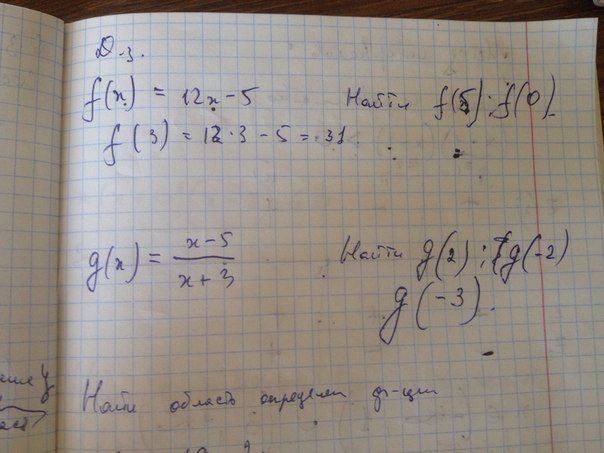 Д.з.
f(x) = 12x - 5 Найти f(5); f(0)
f(3) = 12·3 - 5 = 31
g(x) = \frac{x-5}{x+3} Найти g(2); g(-2)
g(-3).
Найти область определен ф-ции